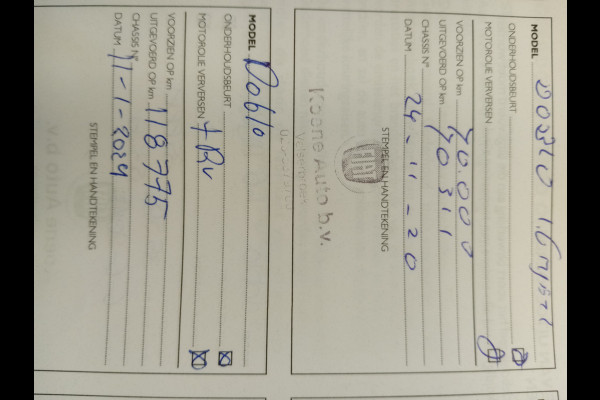 MODEL Doblo
ONDERHOUDSBEURT
MOTOROLIE VERVERSEN
VOORZIEN OP km 40.000
UITGEVOERD OP km 40311
CHASSIS N°
DATUM 24-11-20
STEMPEL EN HANDTEKENING
FIAT
Koene Auto b.v.
MODEL Doblo
ONDERHOUDSBEURT
MOTOROLIE VERVERSEN
VOORZIEN OP km
UITGEVOERD OP km 118775
CHASSIS N°
DATUM 11-1-2024
STEMPEL EN HANDTEKENING